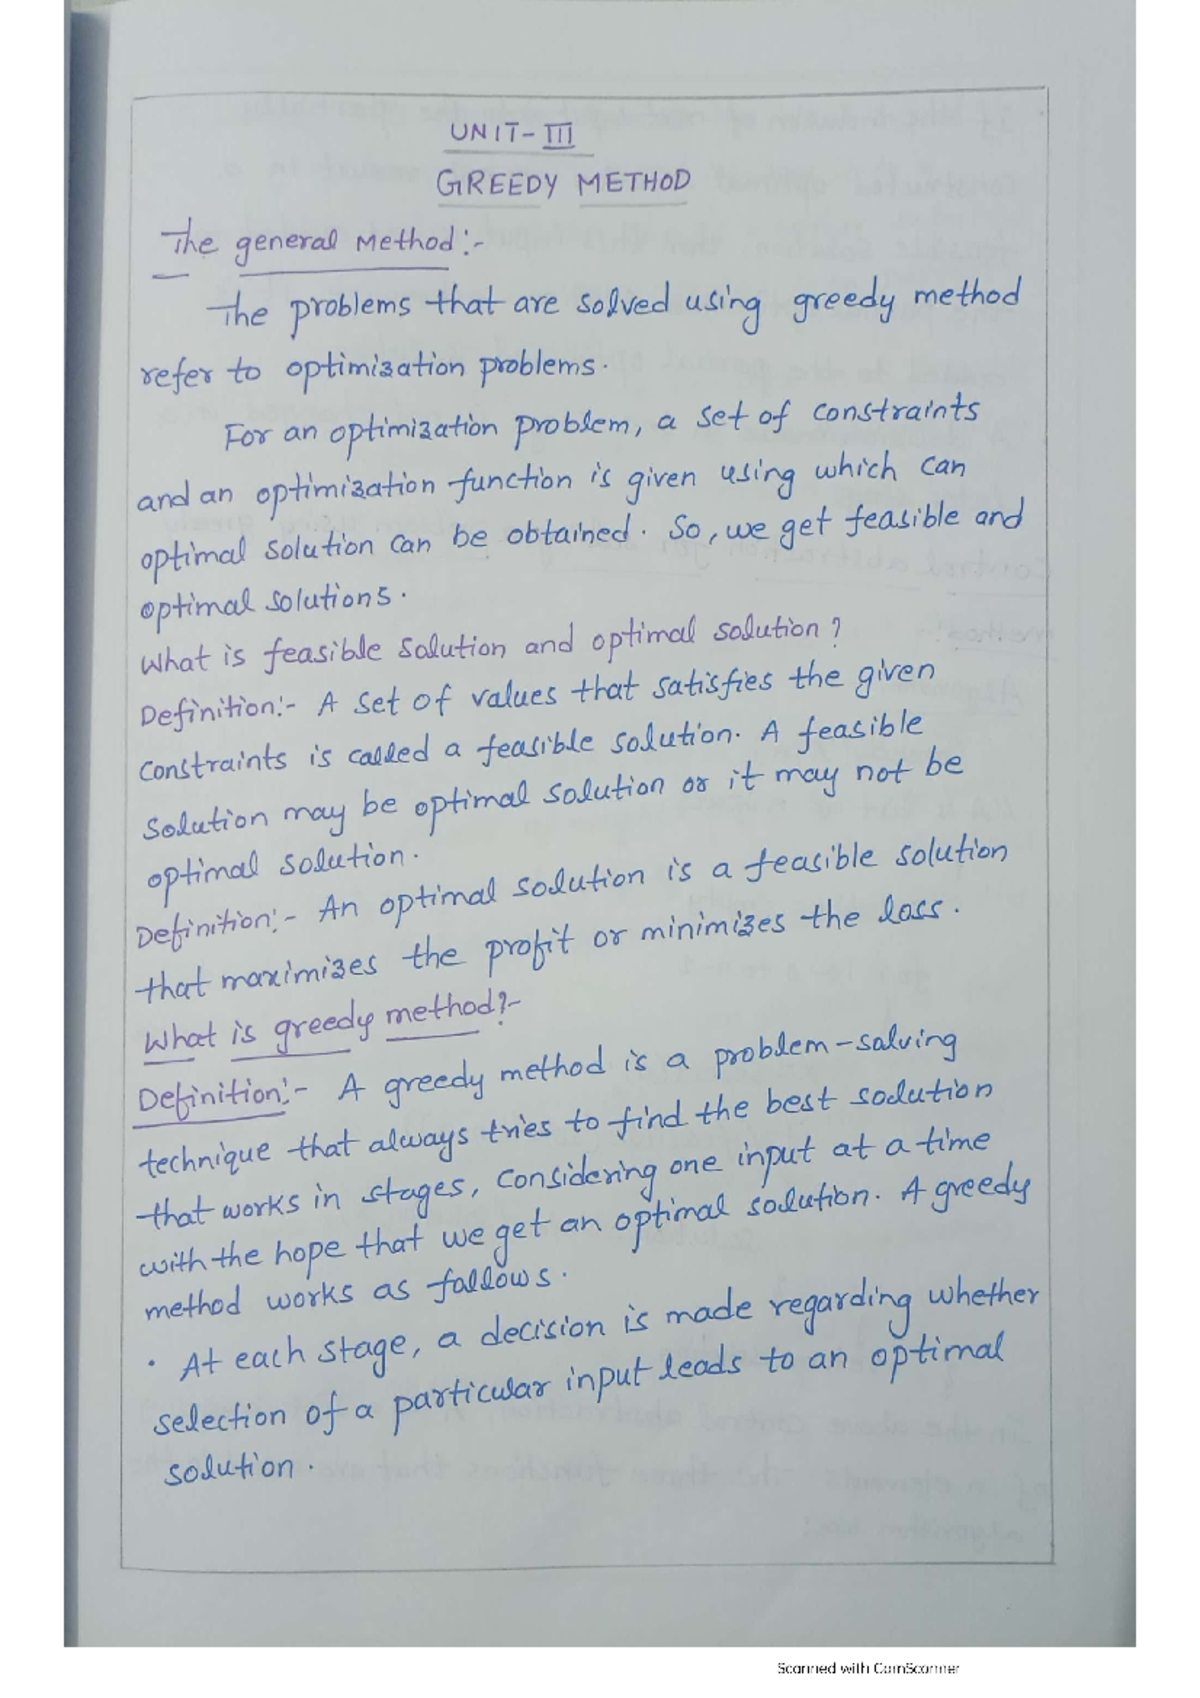 UNIT-III
GREEDY METHOD
The general Method:-
The problems that are solved using greedy method
refer to optimization problems.
For an optimization problem, a set of constraints
and an optimization function is given using which can
optimal solution can be obtained. So, we get feasible and
optimal solutions.
What is feasible solution and optimal solution?
Definition:- A set of values that satisfies the given
constraints is called a feasible solution. A feasible
solution may be optimal solution or it may not be
optimal solution.
Definition:- An optimal solution is a feasible solution
that maximizes the profit or minimizes the loss.
What is greedy method?-
Definition:- A greedy method is a problem-solving
technique that always tries to find the best solution
that works in stages, considering one input at a time
with the hope that we get an optimal solution. A greedy
method works as follows.
• At each stage, a decision is made regarding whether
selection of a particular input leads to an optimal
solution.
Scanned with CamScanner